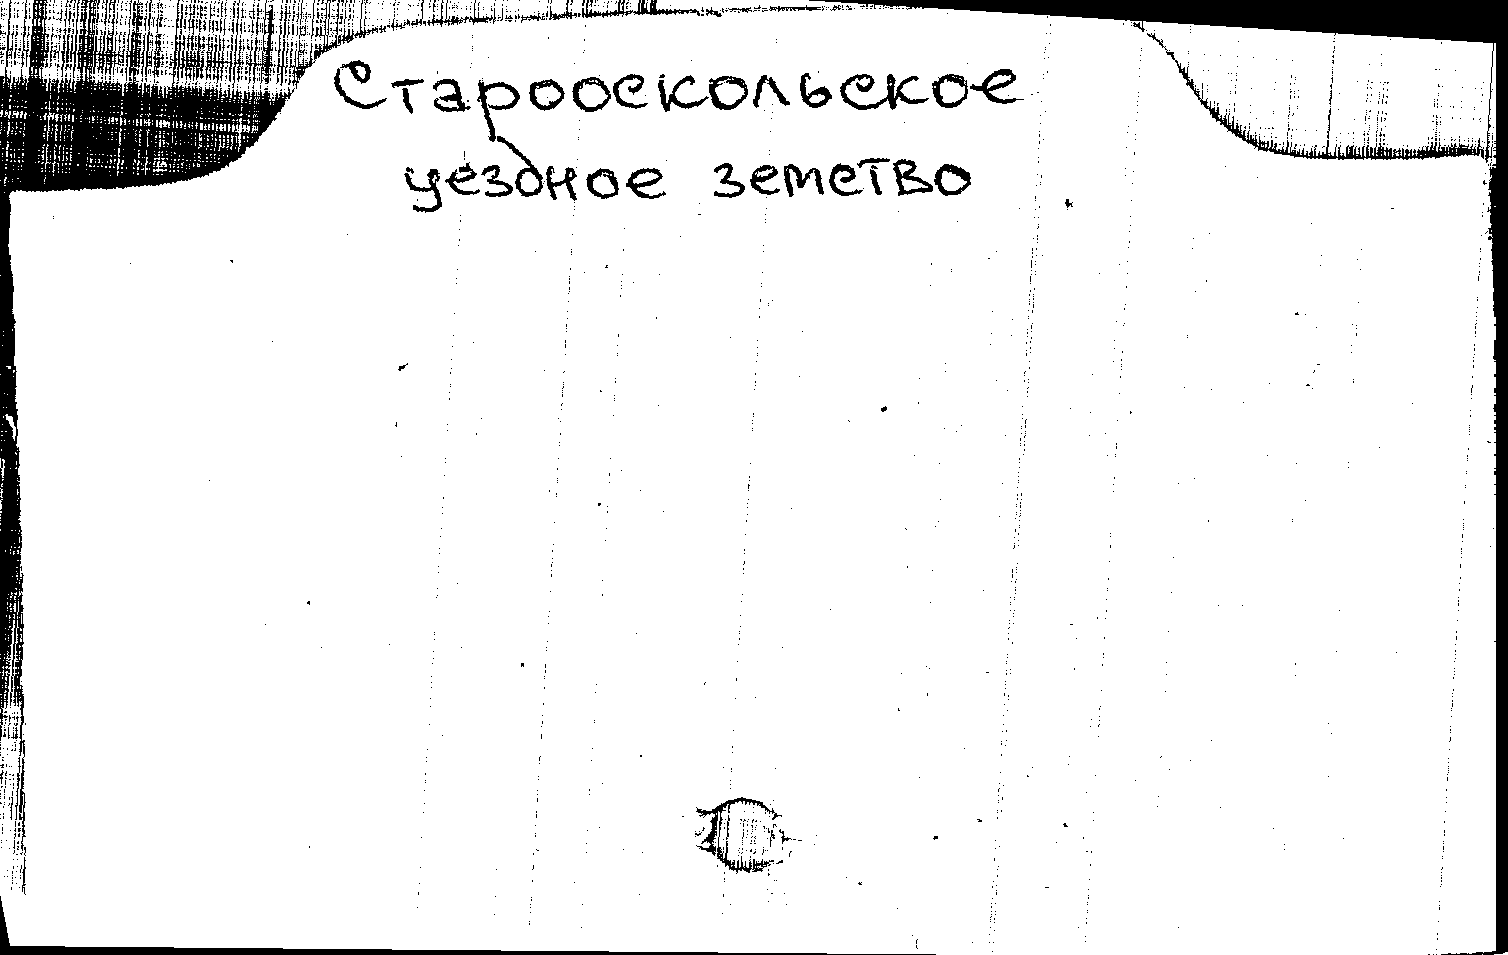 Старооскольское
уездное земство